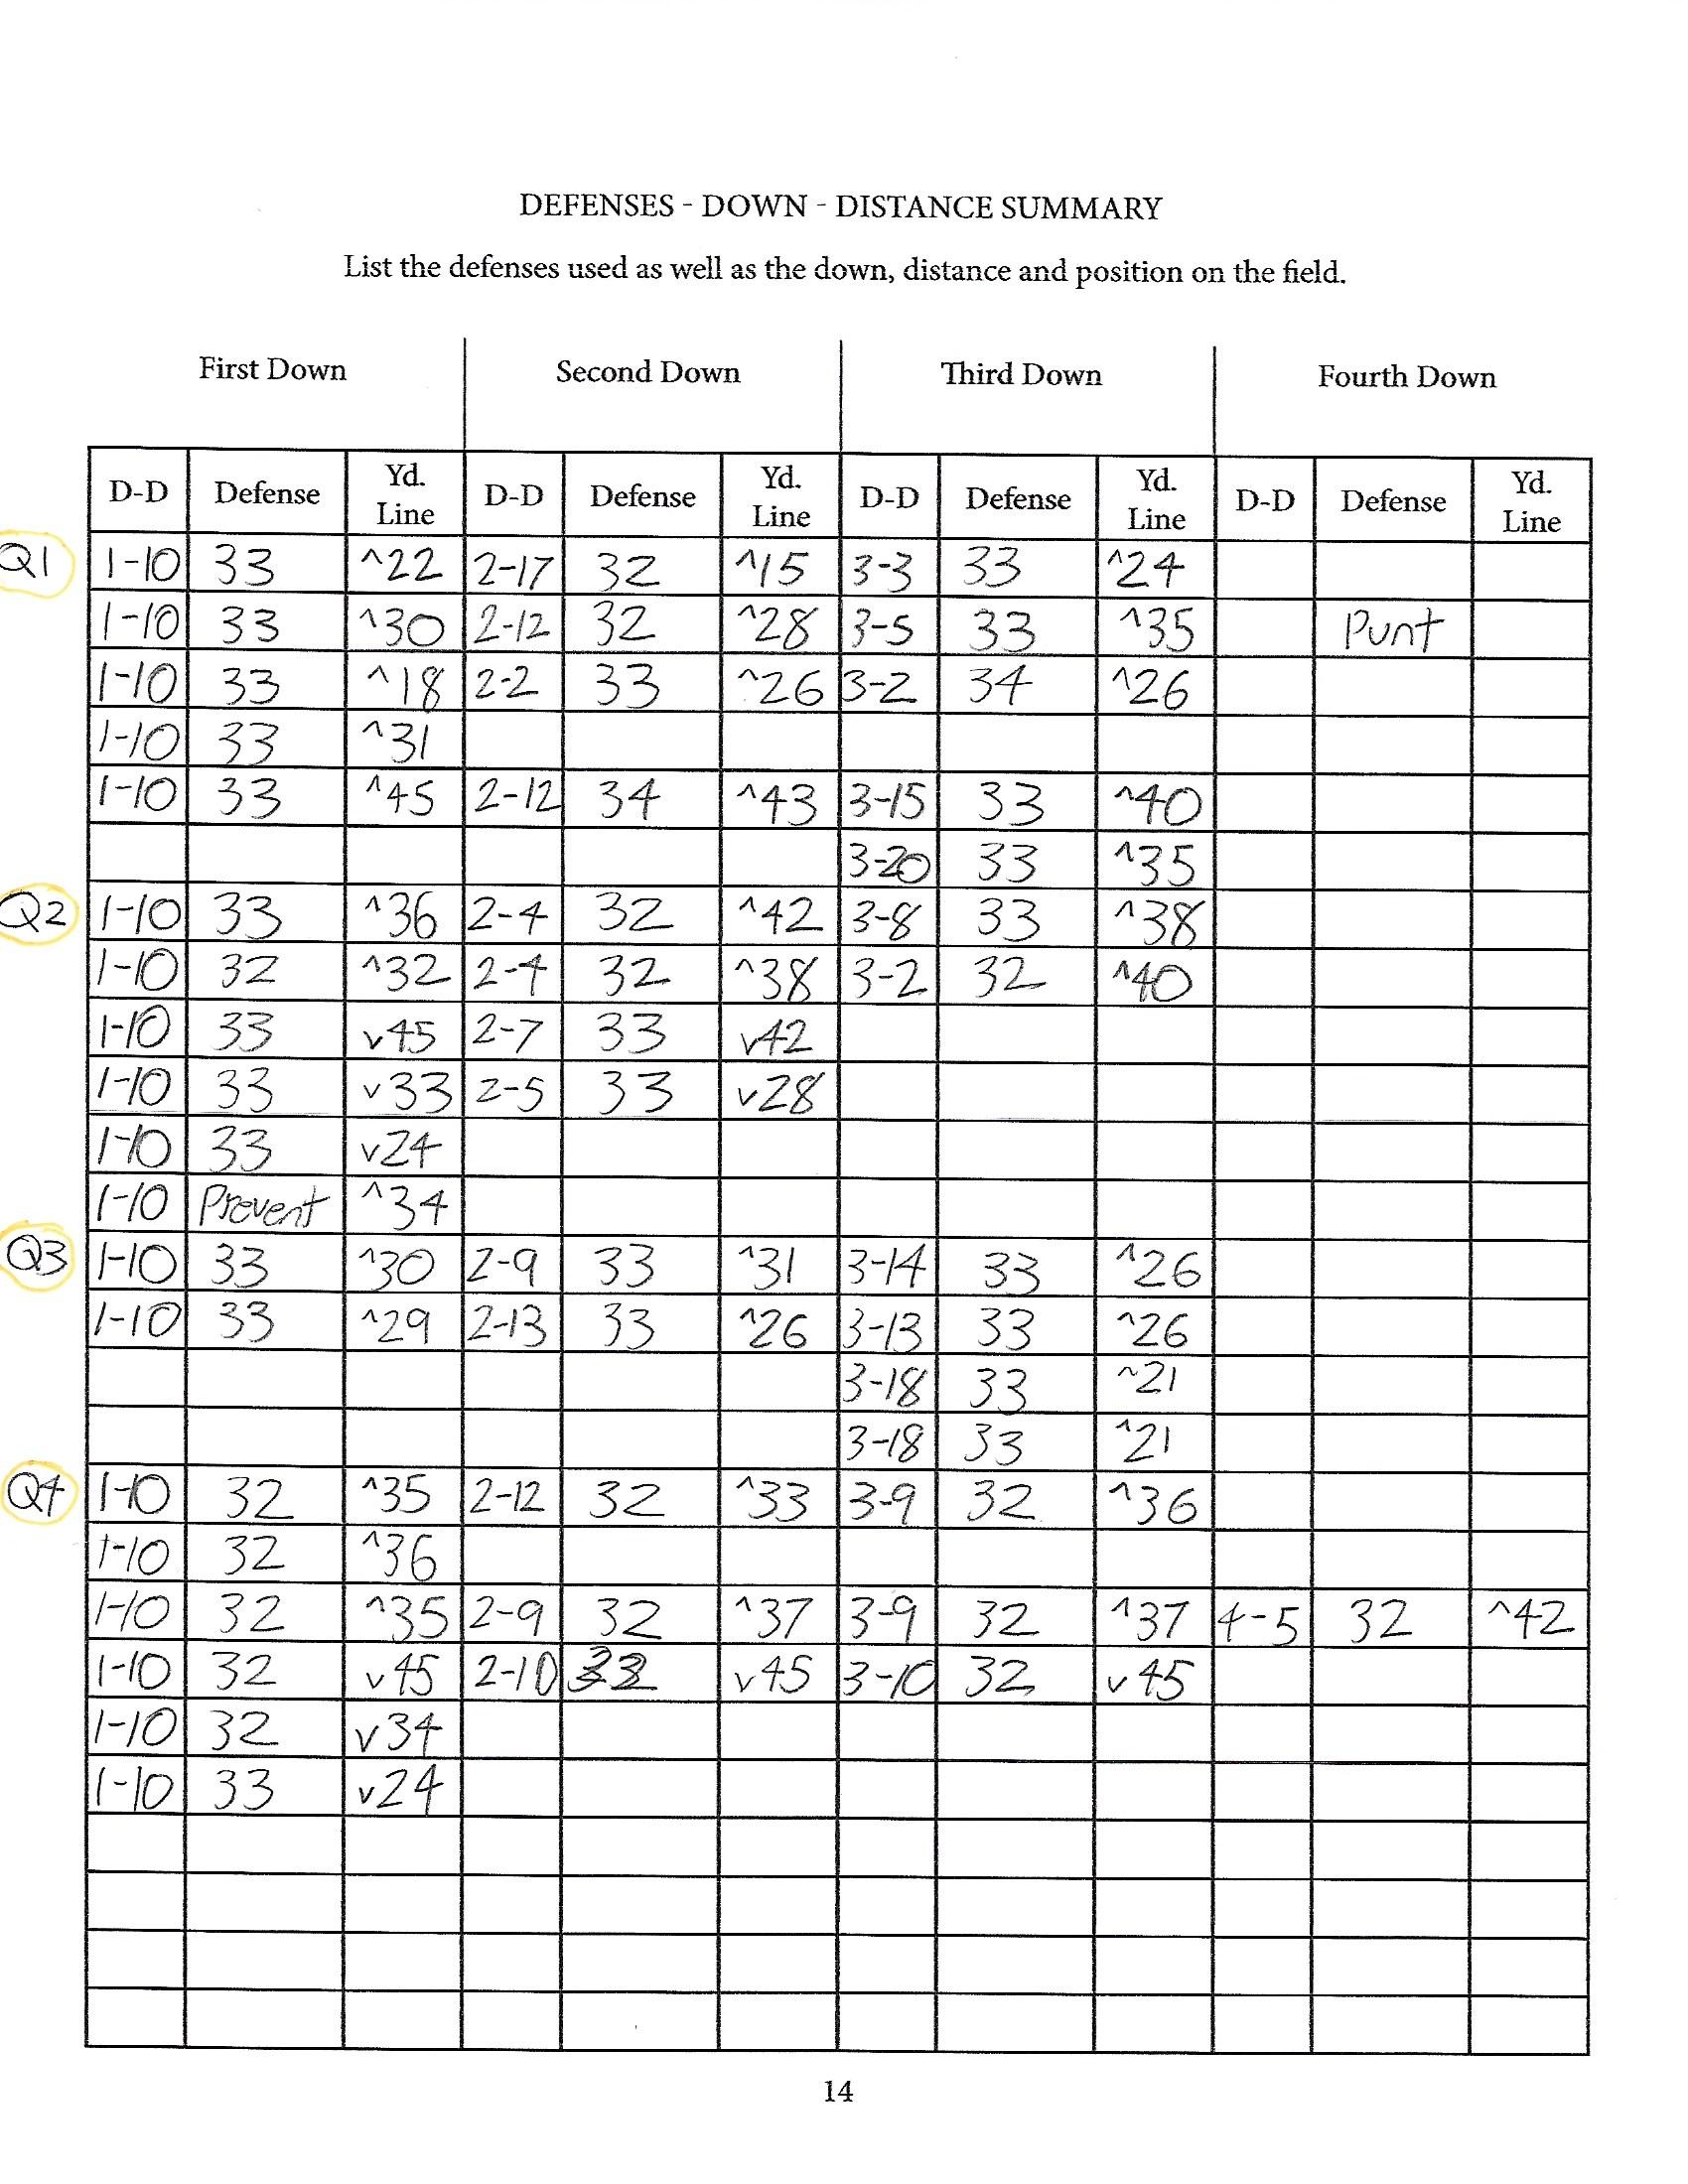 DEFENSES - DOWN - DISTANCE SUMMARY
List the defenses used as well as the down, distance and position on the field.
First Down Second Down Third Down Fourth Down
D-D Defense Yd. Line D-D Defense Yd. Line D-D Defense Yd. Line D-D Defense Yd. Line
Q1 1-10 33 ^22 2-17 32 ^15 3-3 33 ^24
1-10 33 ^30 2-12 32 ^28 3-5 33 ^35 Punt
1-10 33 ^18 2-2 33 ^26 3-2 34 ^26
1-10 33 ^31
1-10 33 ^45 2-12 34 ^43 3-15 33 ^40
3-20 33 ^35
Q2 1-10 33 ^36 2-4 32 ^42 3-8 33 ^38
1-10 32 ^32 2-4 32 ^38 3-2 32 ^40
1-10 33 v45 2-7 33 v42
1-10 33 v33 2-5 33 v28
1-10 33 v24
1-10 Prevent ^34
Q3 1-10 33 ^30 2-9 33 ^31 3-14 33 ^26
1-10 33 ^29 2-13 33 ^26 3-13 33 ^26
3-18 33 ^21
3-18 33 ^21
Q4 1-10 32 ^35 2-12 32 ^33 3-9 32 ^36
1-10 32 ^36
1-10 32 ^35 2-9 32 ^37 3-9 32 ^37 4-5 32 ^42
1-10 32 v45 2-10 v45 3-10 32 v45
1-10 32 v34
1-10 33 v24
14